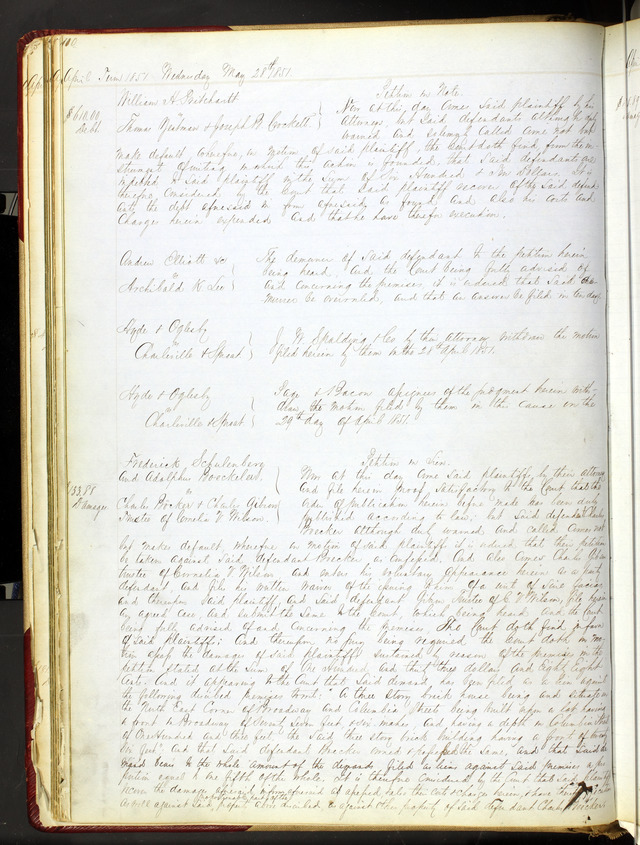 April Term 1851 Wednesday May 28th 1851
William H. Pritchartt
vs
Thomas Yeatman & Joseph B. Crockett
$610.00
Debt
Petition on Note
Now at this day come said plaintiff by his
attorney, but said defendants although duly
warned and solemnly called come not but
make default, wherefore, on motion of said plaintiff, the Court doth find, from the in-
strument of writing on which this action is founded, that said defendants are
indebted to said plaintiff in the sum of Six Hundred & ten Dollars. It is
therefore considered by the Court that said plaintiff recover of the said defend-
ants the debt aforesaid in form aforesaid found, and also his costs and
Charges herein expended and that he have therefor execution.
Andrew Elliott
vs
Archibald K. Lee
The demurrer of said defendant to the petition herein
being heard, and the Court being fully advised of
and concerning the premises, it is ordered that said de-
murrer be overruled, and that an answer be filed in ten days
Hyde & Oglesby
vs
Charleville & Sweet
J. W. Spalding & Co by their attorney withdraw the motion
filed herein by them on the 28th April 1851.
Hyde & Oglesby
vs
Charleville & Sweet
Page & Bacon assignees of the judgment herein with-
draw the motion filed by them in this cause on the
29th day of April 1851.
Frederick Schulenberg
and Adolphus Boeckeler,
vs
Charles Brocker & Charles Gibson
Trustee of Cornelia V. Wilson.
133.88
Damages
Petition on Lien.
Now at this day come said plaintiffs by their attorney
and file herein proof satisfactory to the Court that the
order of publication herein before made has been duly
published according to law, but said defendant Charles
Brocker although duly warned and called comes not
but makes default, wherefore on motion of said plaintiff it is ordered that their petition
be taken against said defendant Brocker as confessed. And also comes Charles Gibson
trustee of Cornelia V. Wilson and enters his voluntary appearance herein as a party
defendant, and files his written waiver of the issuing herein of a writ of Scire facias
and thereupon said plaintiffs and said defendant Gibson Trustee of C. V. Wilson, file herein
an agreed case, and submit the same to the Court, which being heard and the Court
being fully advised of and concerning the premises The Court doth find in favor
of said plaintiffs; And thereupon no jury being required the Court doth on mo-
tion assess the damages of said plaintiffs sustained by reason of the premises in the
petition stated at the sum of One Hundred and thirty three dollars and Eighty Eight
Cents. And it appearing to the Court that said demand has been filed as a lien against
the following described premises to wit: "A three story brick house being and situate on
the North East Corner of Broadway and Columbia Streets being built upon a lot having
a front on Broadway of twenty seven feet and having a depth on Columbia Street
of One Hundred and three feet the said three story brick building having a front of
feet," And that said defendant Brocker owned & possessed the same, and that said
bears to the whole amount of the demands filed as liens against said Premises a pro-
portion equal to one fifth of the whole. It is therefore considered by the Court that said plaintiffs
recover the damages aforesaid in form aforesaid so assessed, also their costs & charges herein, & have
as well against said property above described as against other property of said defendant Charles Brocker